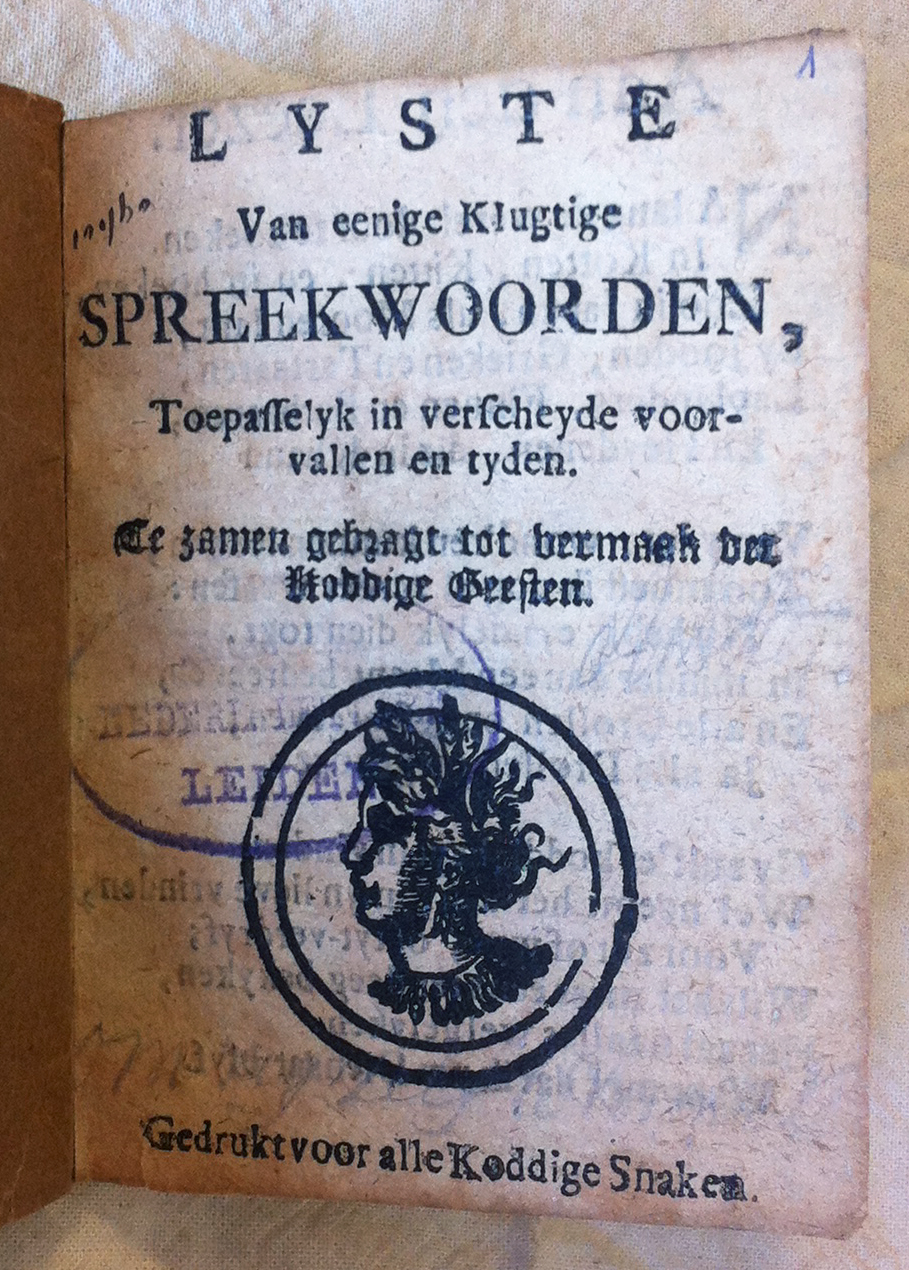 1
L Y S T E
Van eenige Klugtige
SPREEKWOORDEN,
Toepaſſelyk in verſcheyde voor-
vallen en tyden.
Te zamen gebragt tot vermaak der
Koddige Geeſten.
LEIDEN
Gedrukt voor alle Koddige Snaken.